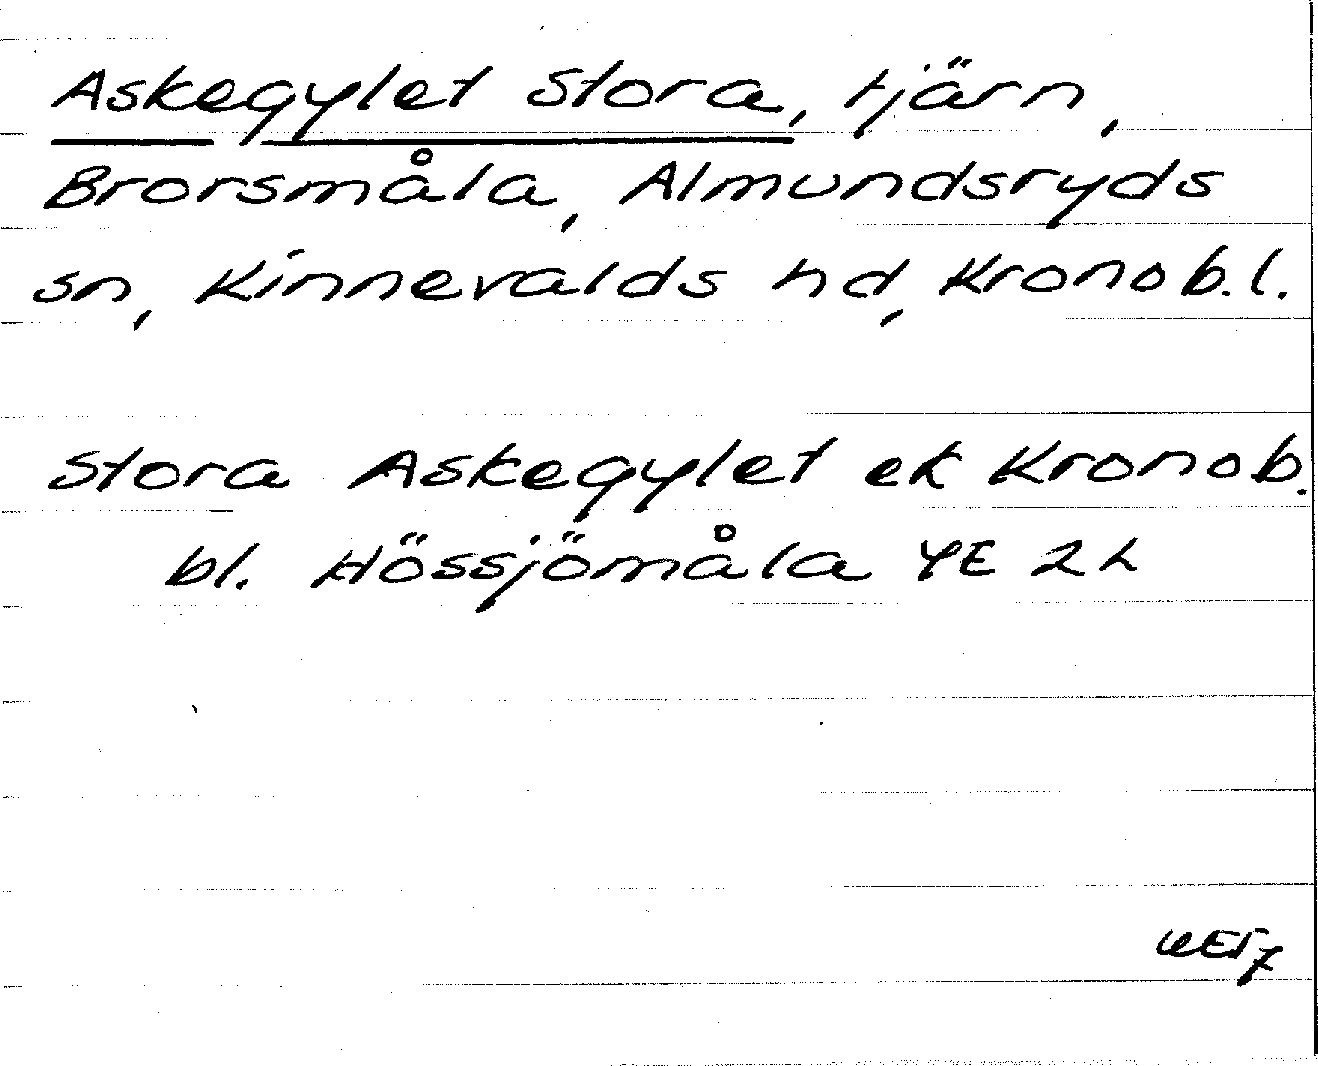 Askegylet Stora, tjärn,
Brorsmåla, Almundsryds
sn, Kinnevalds hd, Kronob.l.
Stora Askegylet ek Kronob.
bl. Hössjömåla 4E 2h